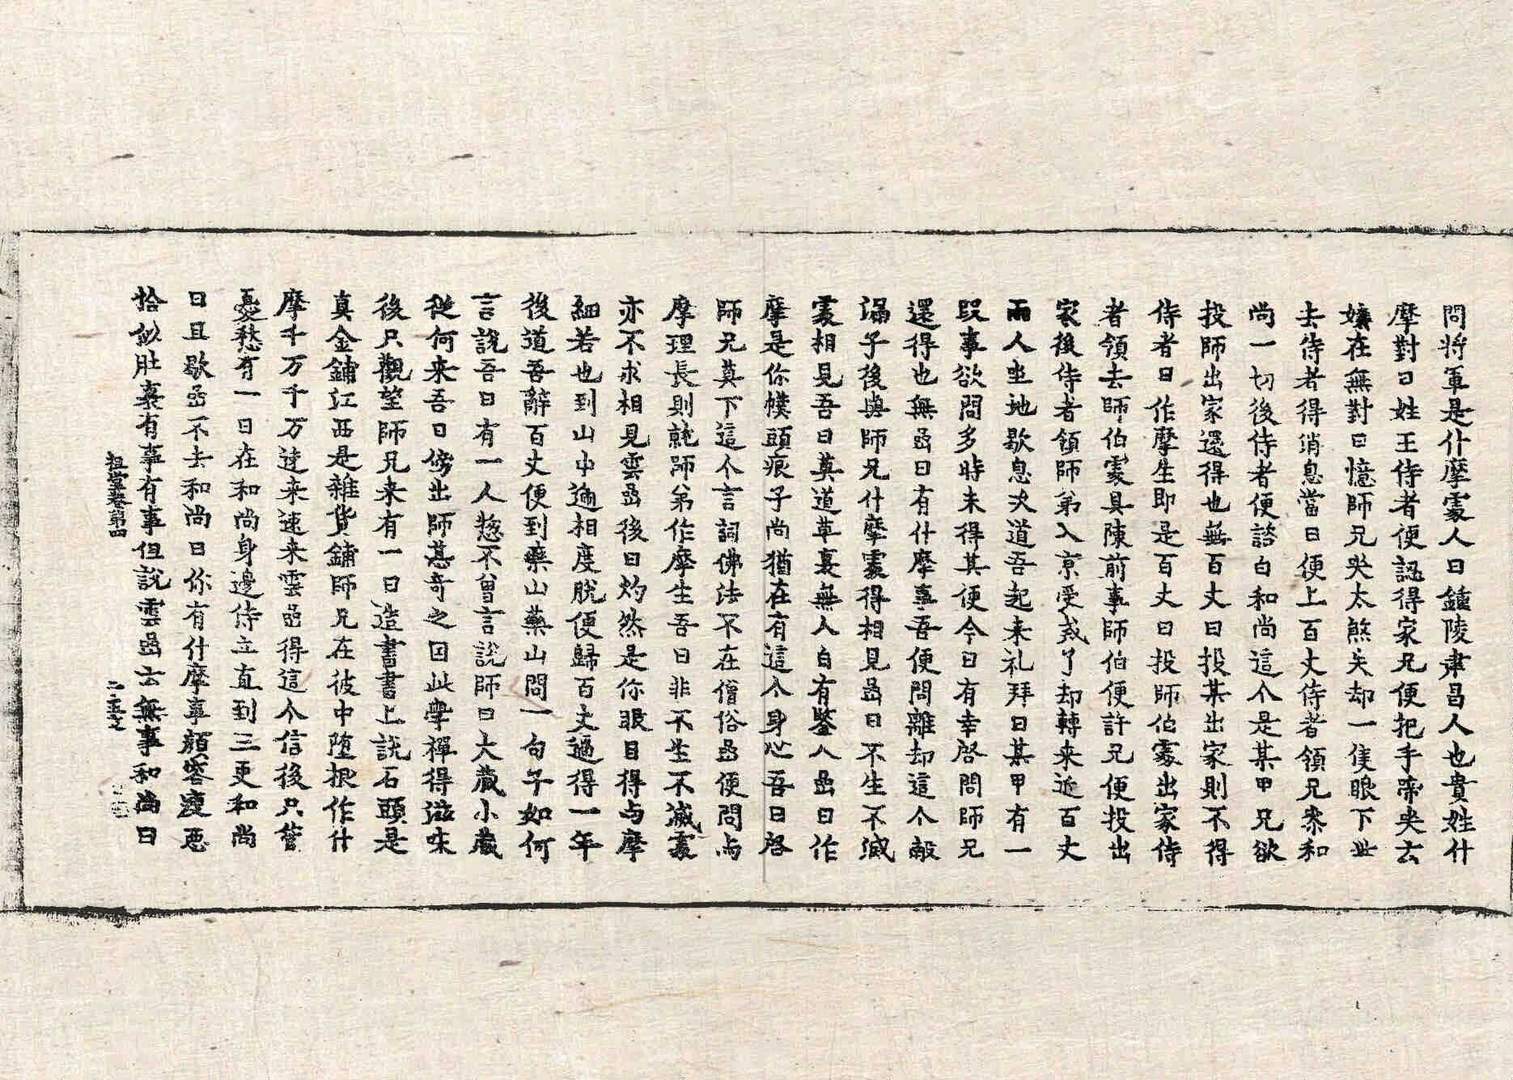 問將軍是什摩處人曰鍾陵建昌人也貴姓什
摩對曰姓王侍者便認得家兄便把手啼哭云
孃在無對曰憶師兄哭太煞失却一隻眼下世
去侍者得消息當日便上百丈侍者領兄叅和
尚一切後侍者便諮白和尚這个是某甲兄欲
投師出家還得也無百丈曰投某出家則不得
侍者曰作摩生即是百丈曰投師伯處出家侍
者領去師伯處具陳前事師伯便許兄便投出
家後侍者領師弟入京受戒了却轉来近百丈
兩人坐地歇息次道吾起来礼拜曰某甲有一
段事欲問多時未得其便今日有幸啓問師兄
還得也無嵒曰有什摩事吾便問離却這个殻
漏子後與師兄什摩處得相見嵒曰不生不滅
處相見吾曰莫道草裏無人自有鑒人嵒曰作
摩是你幞頭痕子尚猶在有這个身心吾曰啓
師兄莫下這个言詞佛法不在僧俗嵒便問与
摩理長則就師弟作摩生吾曰非不生不滅處
亦不求相見雲嵒後曰灼然是你眼目得与摩
細若也到山中遞相度脫便歸百丈過得一年
後道吾辞百丈便到藥山藥山問一句子如何
言說吾曰有一人惣不曾言說師曰大藏小藏
從何来吾曰傍出師甚奇之因此學禪得滋味
後只觀望師兄来有一日造書書上說石頭是
真金鋪江西是雜貨鋪師兄在彼中堕根作什
摩千万千万速来速来雲嵒得這个信後只管
憂愁有一日在和尚身邊侍立直到三更和尚
曰且歇嵒不去和尚曰你有什摩事顏容瘦惡
恰似肚裏有事有事但說雲嵒云無事和尚曰
祖堂卷第四